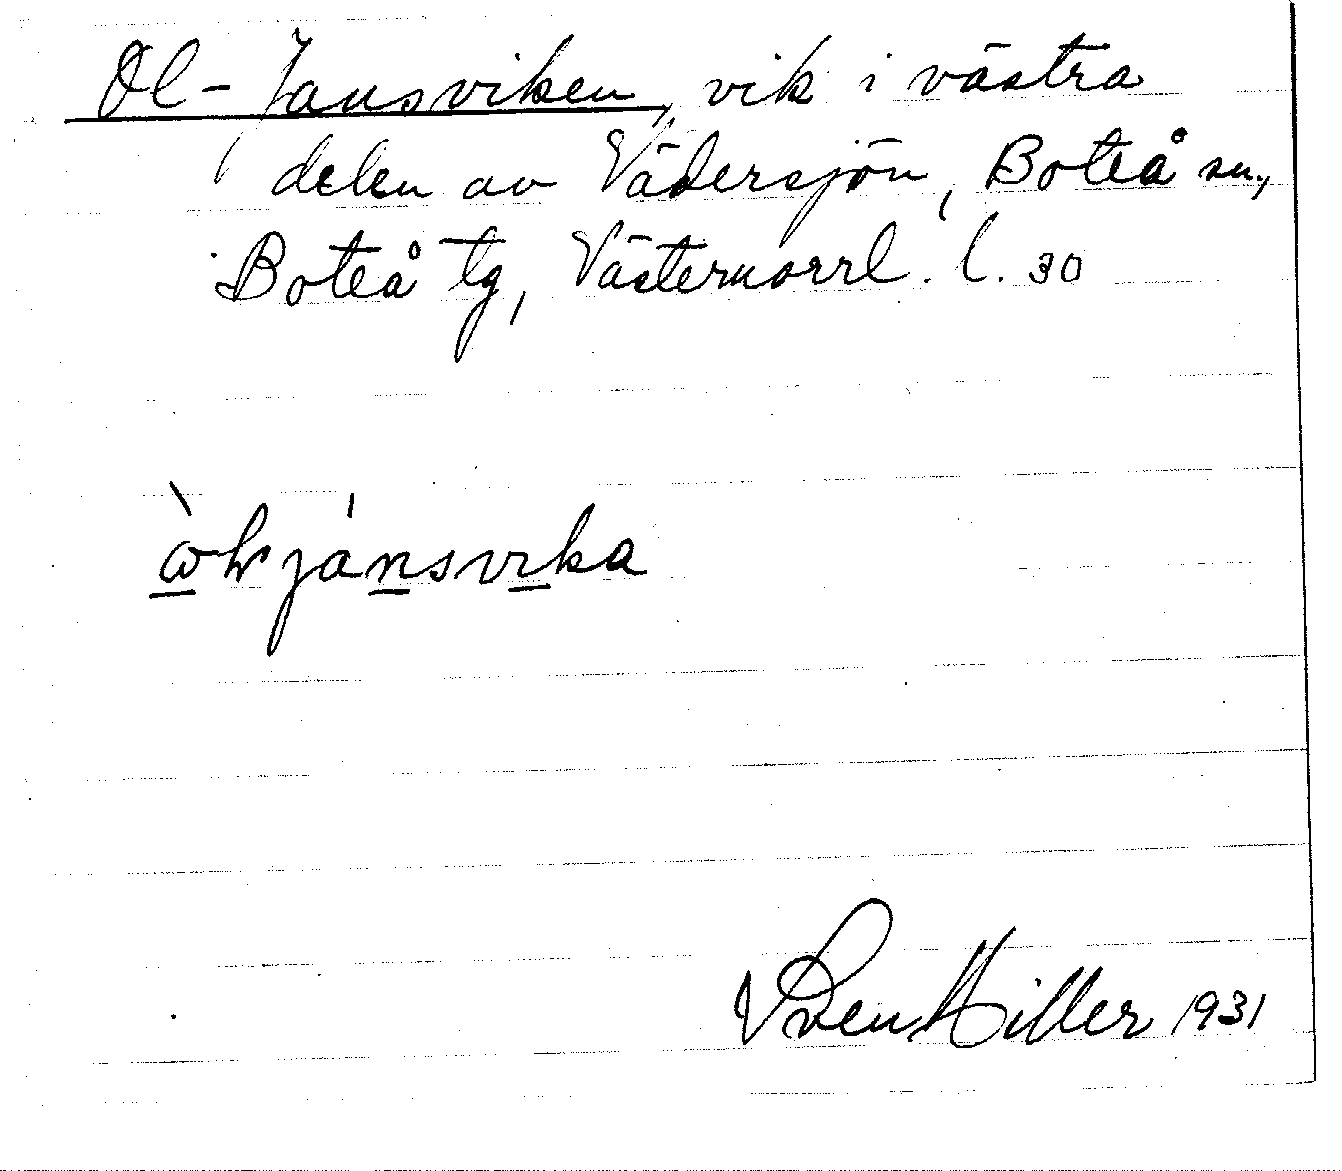 Ol-Jansviken, vik i västra
delen av Vädersjön, Boteå sn.,
Boteå tg, Västernorrl. l. 30
Sven Hiller 1931